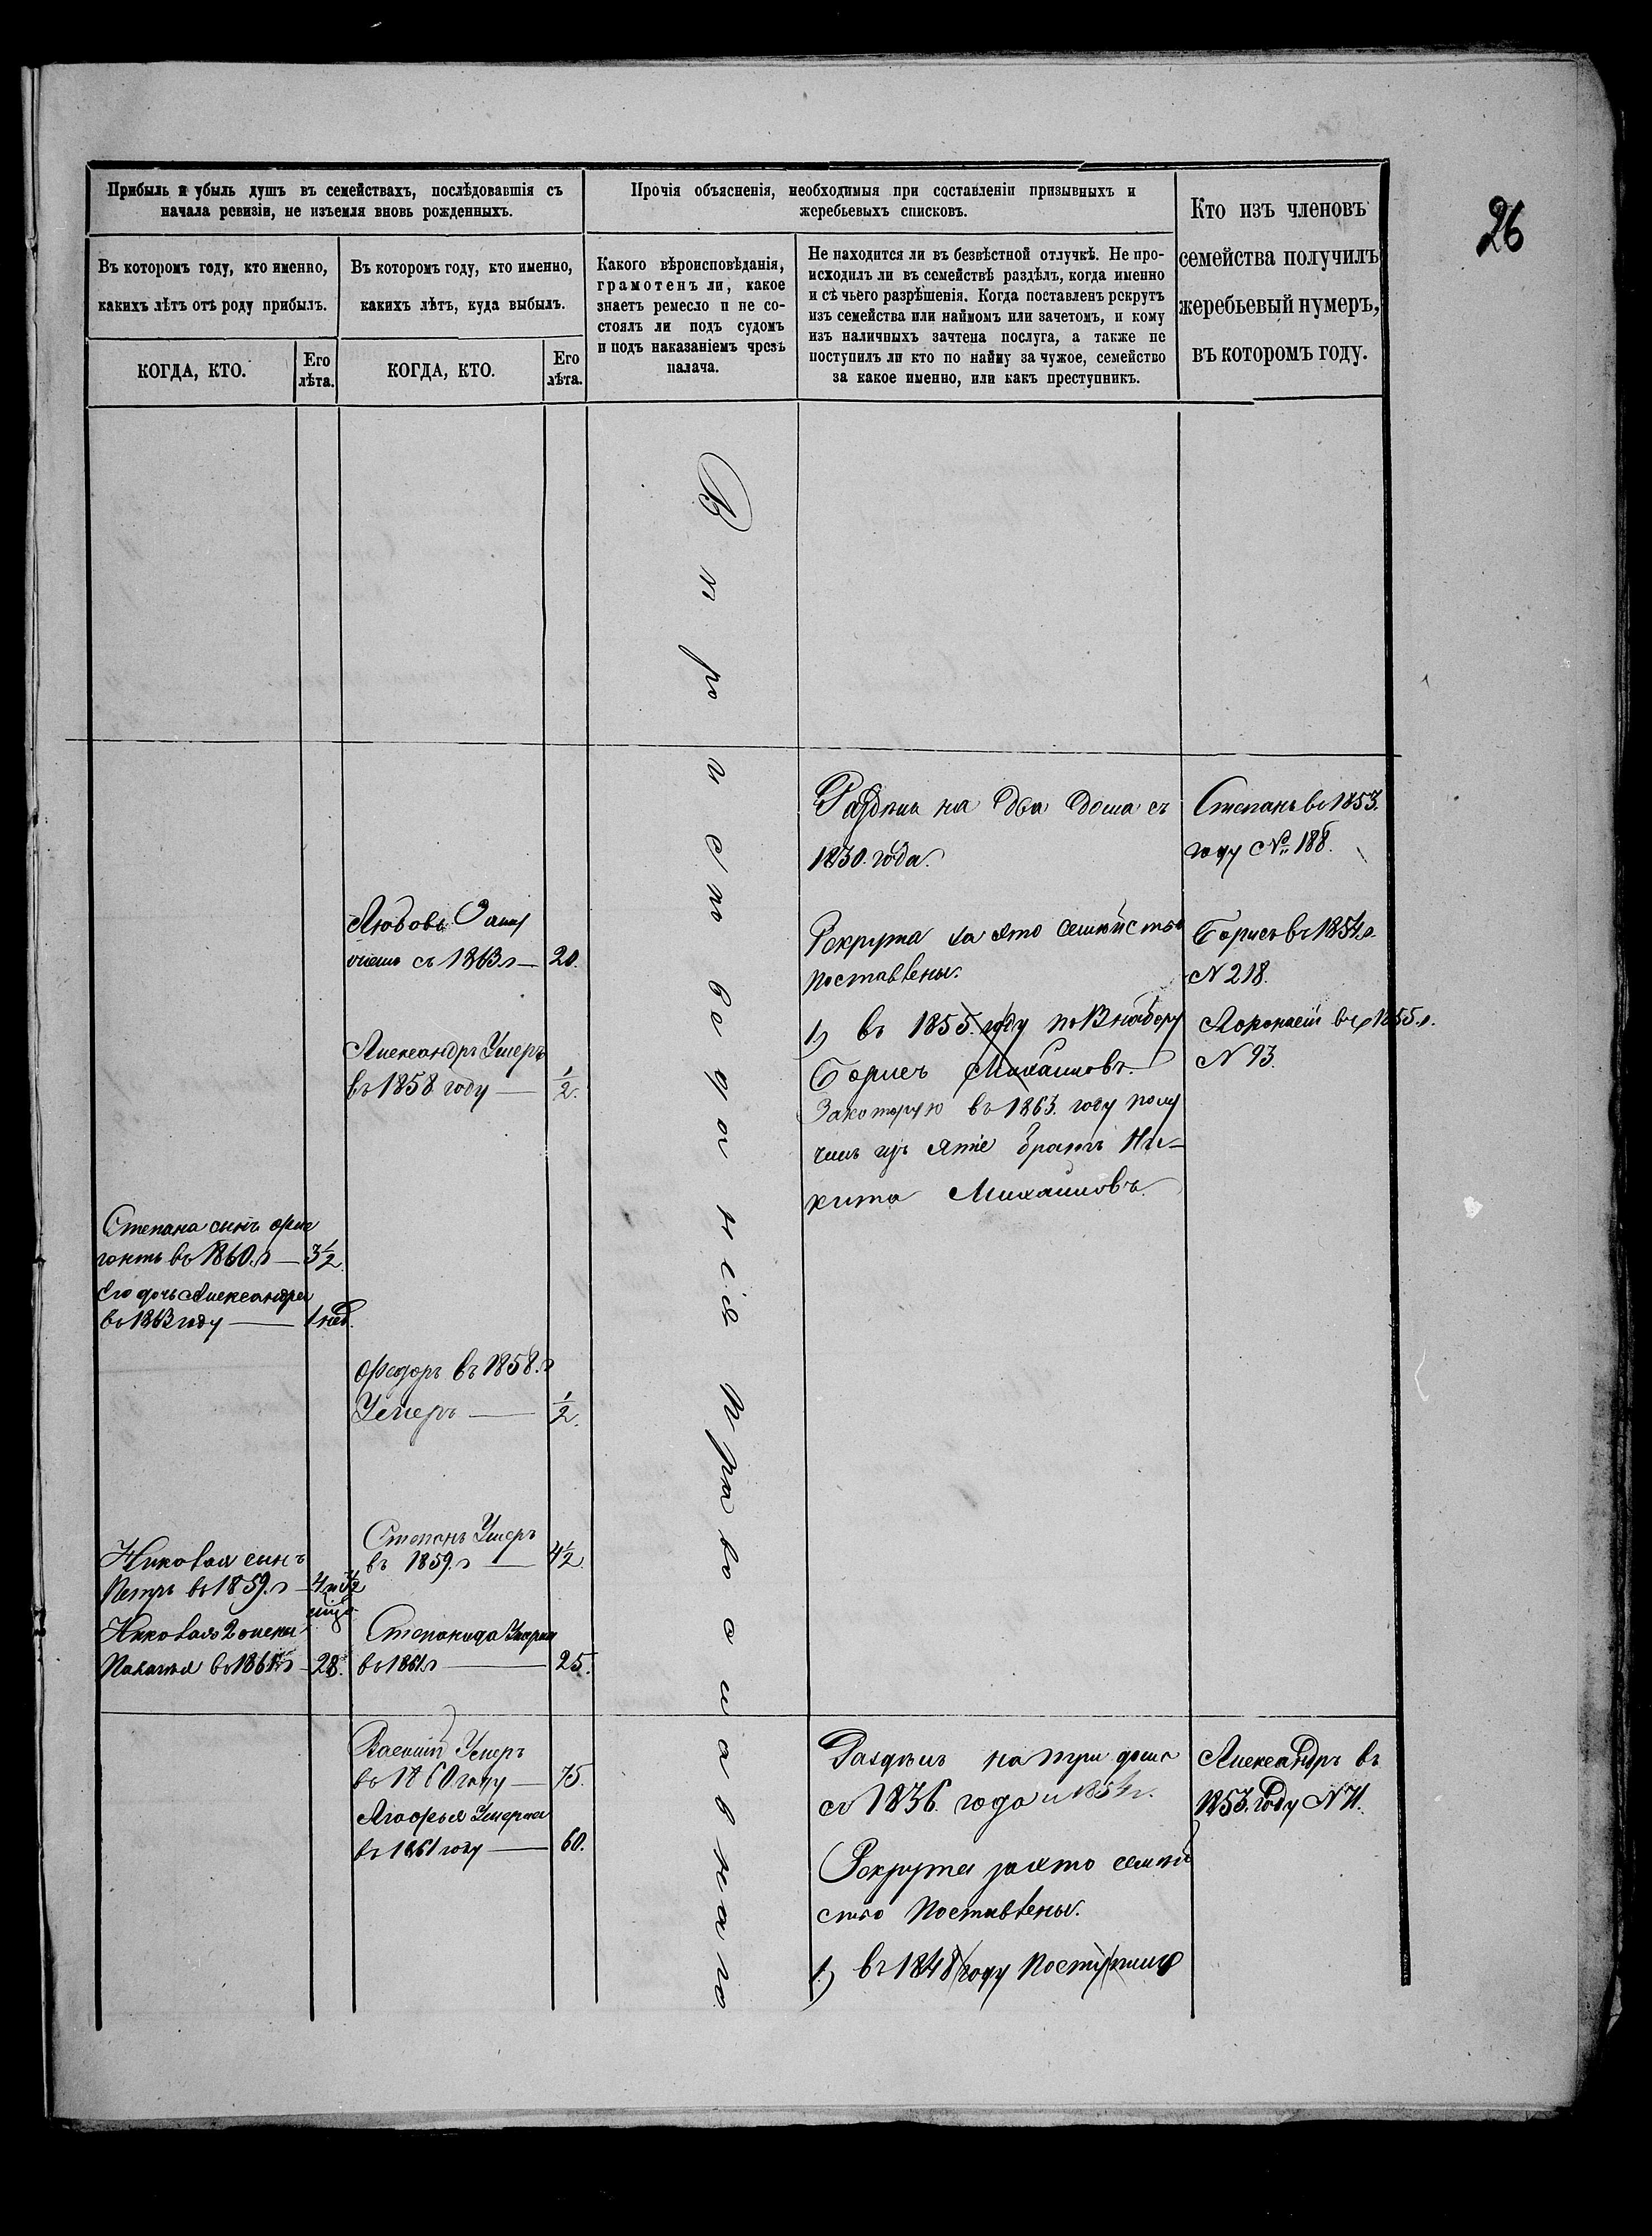 26
Прибыль и убыль душъ въ семействахъ, послѣдовавшія съ
начала ревизіи, не изъемля вновь рожденныхъ.
Въ которомъ году, кто именно,
какихъ лѣтъ отъ роду прибылъ.
КОГДА, КТО.
Его
лѣта.
Въ которомъ году, кто именно,
какихъ лѣтъ, куда выбылъ.
КОГДА, КТО.
Его
лѣта.
Прочія объясненія, необходимыя при составленіи призывныхъ и
жеребьевыхъ списковъ.
Какого вѣроисповѣданія,
грамотенъ ли, какое
знаетъ ремесло и не со-
стоялъ ли подъ судомъ
и подъ наказаніемъ чрезъ
палача.
Не находится ли въ безвѣстной отлучкѣ. Не про-
исходилъ ли въ семействѣ раздѣлъ, когда именно
и съ чьего разрѣшенія. Когда поставленъ рекрутъ
изъ семейства или наймомъ или зачетомъ, и кому
изъ наличныхъ зачтена послуга, а также не
поступилъ ли кто по найму за чужое, семейство
за какое именно, или какъ преступникъ.
Кто изъ членовъ
семейства получилъ
жеребьевый нумеръ,
въ которомъ году.
Степана сынъ
въ 1860 г — 3½
Его дочь Александра
въ 1863 году — 1 нед.
Николая сынъ
Петръ въ 1859 г — 4
Николая 2
въ 186 г — 28.
Любовь Заму
съ 1863 г — 20.
Александръ Умеръ
въ 1858 году — ½.
Федоръ въ 1858. г
Умеръ — ½.
Степанъ Умеръ
въ 1859. г — 4½
Степанида Умерла
въ 1861 г — 25.
Василій Умеръ
въ 1860 году — 75.
Агафья Умерла
въ 1861 году — 60.
Вѣроисповеданія Православнаго
Раздѣлъ на два дома съ
1830. года.
Рекрута за ято семѣйство
поставлены.
1) въ 1855. году по набору
Борисъ Михаиловъ.
Закоторую въ 1863. году полу
чилъ изъ яте братъ Ни-
кита Михаиловъ.
Раздѣлъ на три дома
съ 1836. года и 1854 г.
Рекрута заято семѣй
ство Поставлены.
1) въ 1848 году Поступилъ
Степанъ въ 1853.
году № 188.
Борисъ въ 1854 г.
N 218.
въ 1855 г.
N 93.
Александръ въ
1853. году N 71.